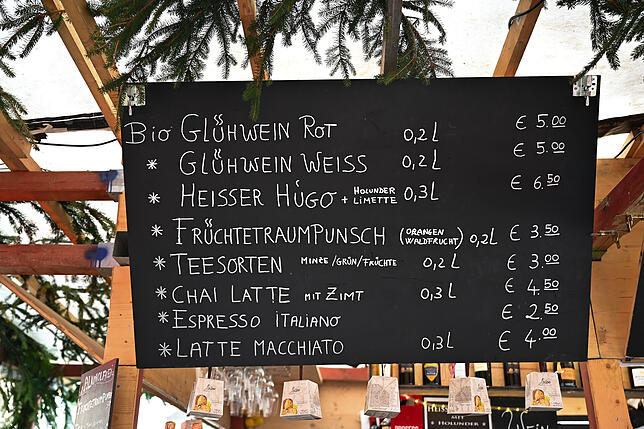 Bio GLÜHWEIN ROT 0,2L € 5.00
* GLÜHWEIN WEISS 0,2L € 5.00
* HEISSER HUGO + HOLUNDER LIMETTE 0,3L € 6.50
* FRÜCHTETRAUMPUNSCH (ORANGEN WALDFRUCHT) 0,2L € 3.50
* TEESORTEN MINZE/GRÜN/FRÜCHTE 0,2L € 3.00
* CHAI LATTE MIT ZIMT 0,3L € 4.50
* ESPRESSO ITALIANO € 2.50
* LATTE MACCHIATO 0,3L € 4.00
HEISS
MIT
HOLUNDER